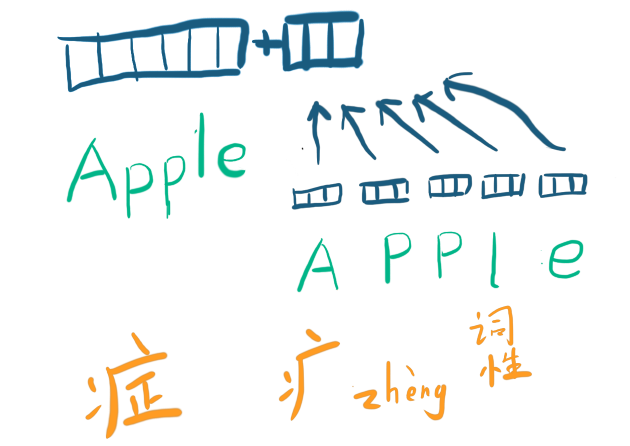 +
Apple
A P P l e
症 疒 zhèng 词性